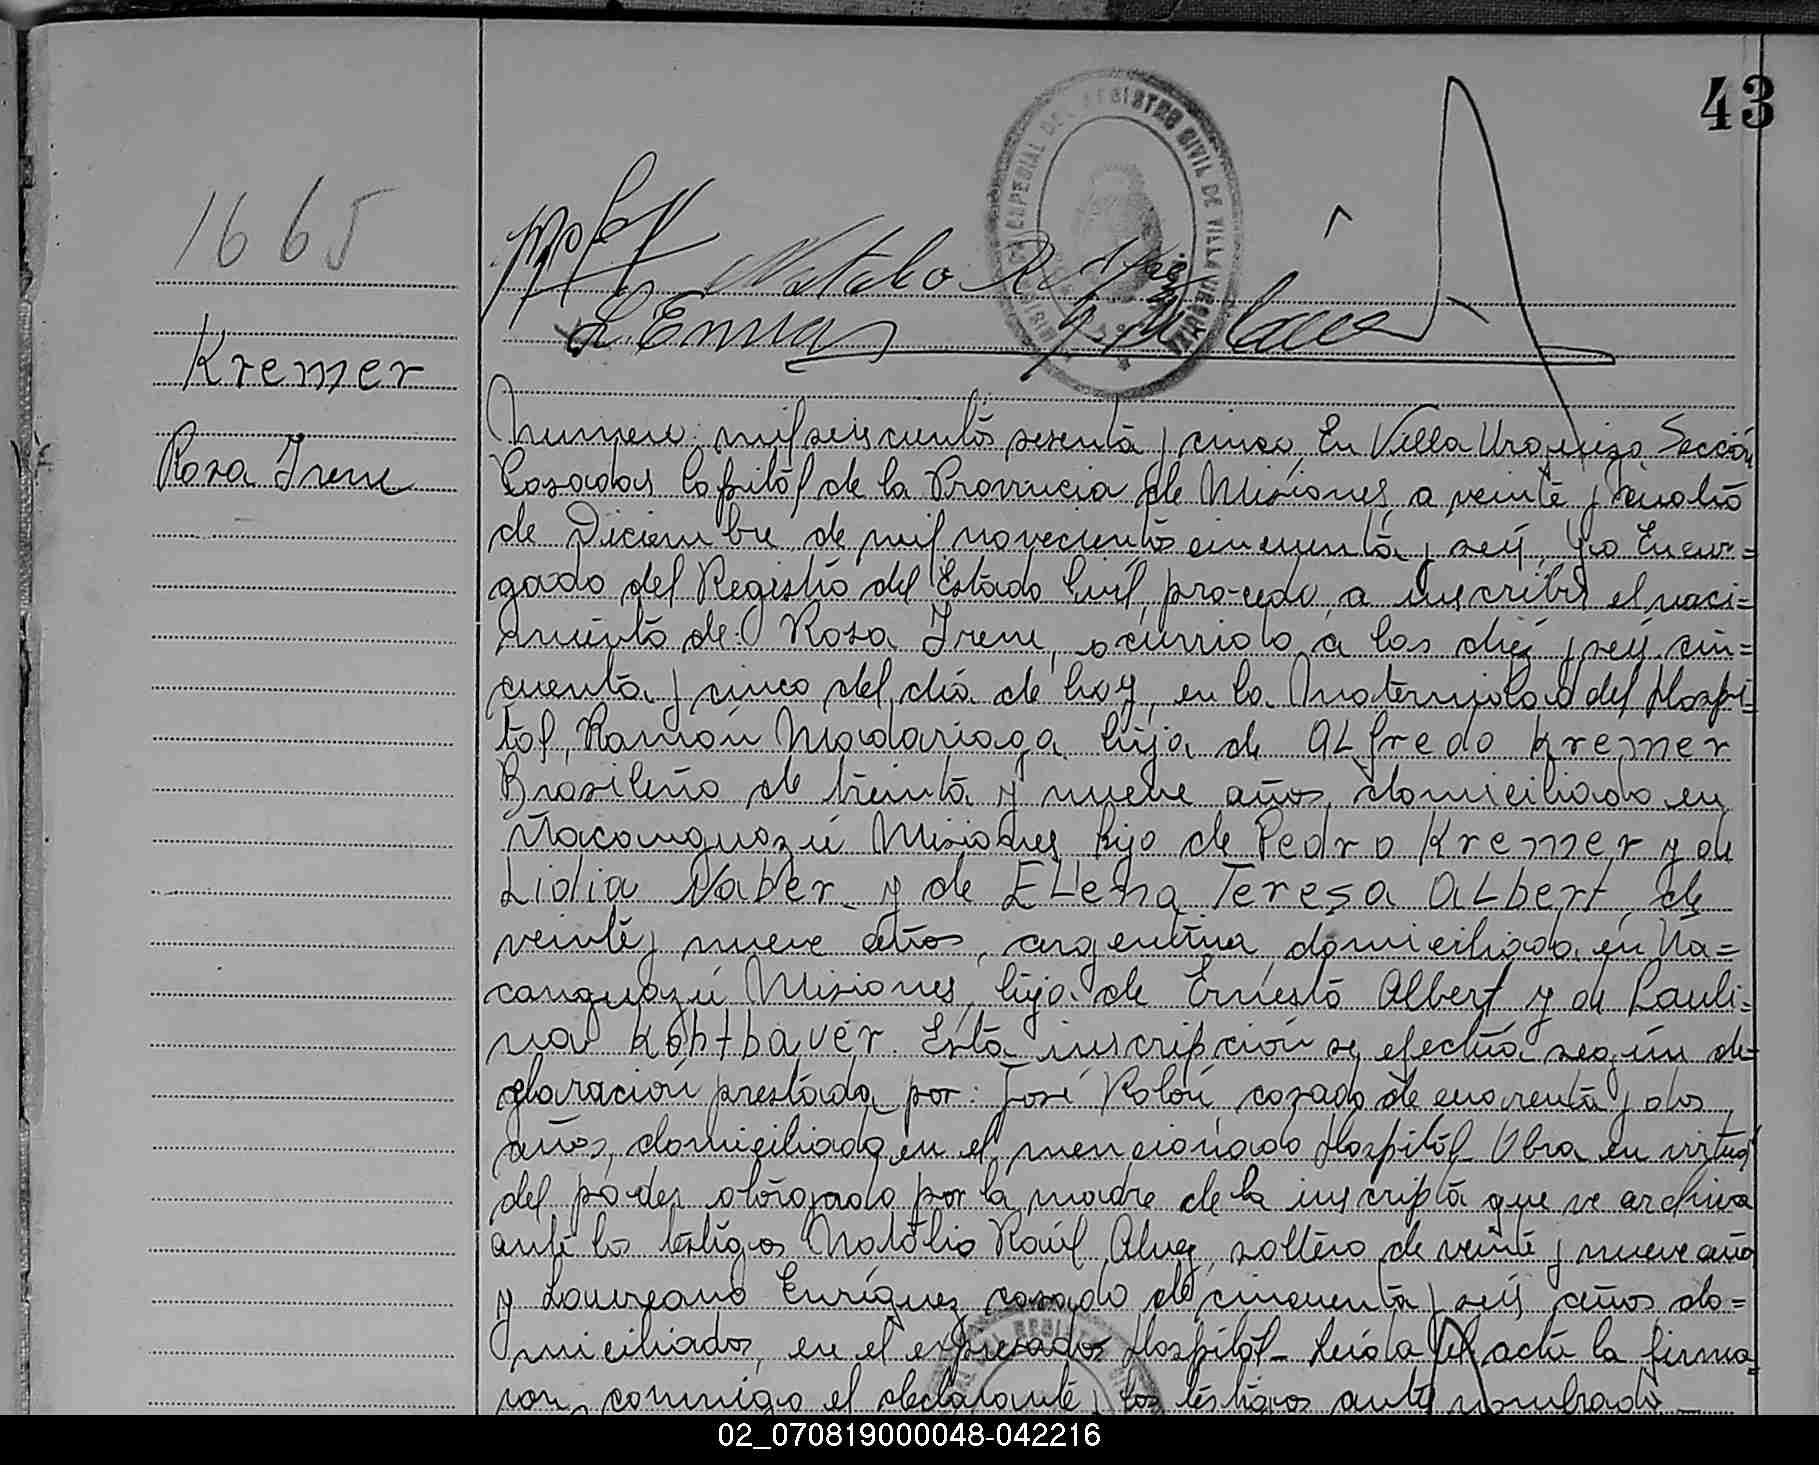 43
REGISTRO CIVIL DE VILLA URQUIZA
1665
Kremer
Rosa Irene
Natalio R
L. Enriq
Numero: mil seiscientos sesenta y cinco. En Villa Urquiza Sección
Posadas Capital de la Provincia de Misiones, a veinte y
de Diciembre de mil novecientos cincuenta y seis, Yo Encar=
gado del Registro del Estado Civil, procedo, a inscribir el naci=
miento de: Rosa Irene, ocurrido a las diez y seis cin=
cuenta y cinco del día de hoy, en la Maternidad del Hospi=
tal, Ramón Madariaga hija de Alfredo Kremer
Brasileño de treinta y nueve años, domiciliado en
Ñacanguazú Misiones, hijo de Pedro Kremer y de
Lidia Naber y de Elena Teresa Albert, de
veinte y nueve años, argentina, domiciliada en Ña=
canguazú Misiones, hija de Ernesto Albert y de Pauli=
na Kohtbaver. Esta inscripción se efectúa según de=
claración prestada por: José Rolón, casado de cuarenta y dos
años, domiciliado en el mencionado Hospital_ Obra en virtud
del poder otorgado por la madre de la inscripta que se archiva
ante los testigos Natalio Raúl Alvez, soltero de veinte y nueve años
y Laureano Enríquez casado de cincuenta y seis años do=
miciliados, en el expresados Hospital_ Leída el acta la firma=
ron, conmigo el declarante y los testigos ante nombrado_
02_070819000048-042216